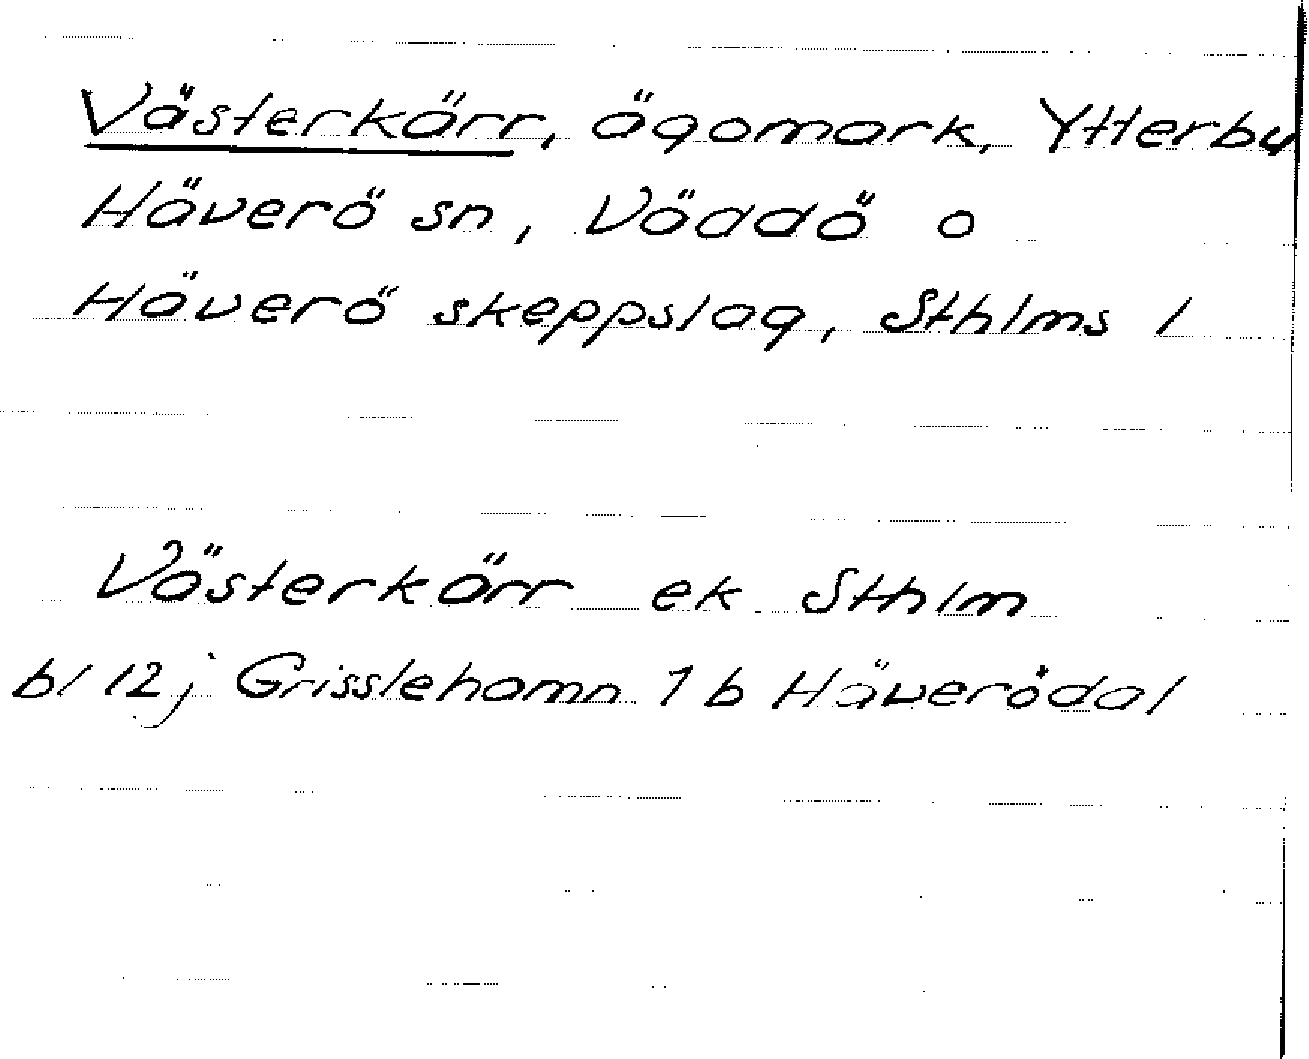 Västerkärr, ägomark, Ytterby
Häverö sn, Väddö o
Häverö skeppslag, Sthlms l
Västerkärr ek Sthlm
bl 12 j Grisslehamn 1 b Häverödal